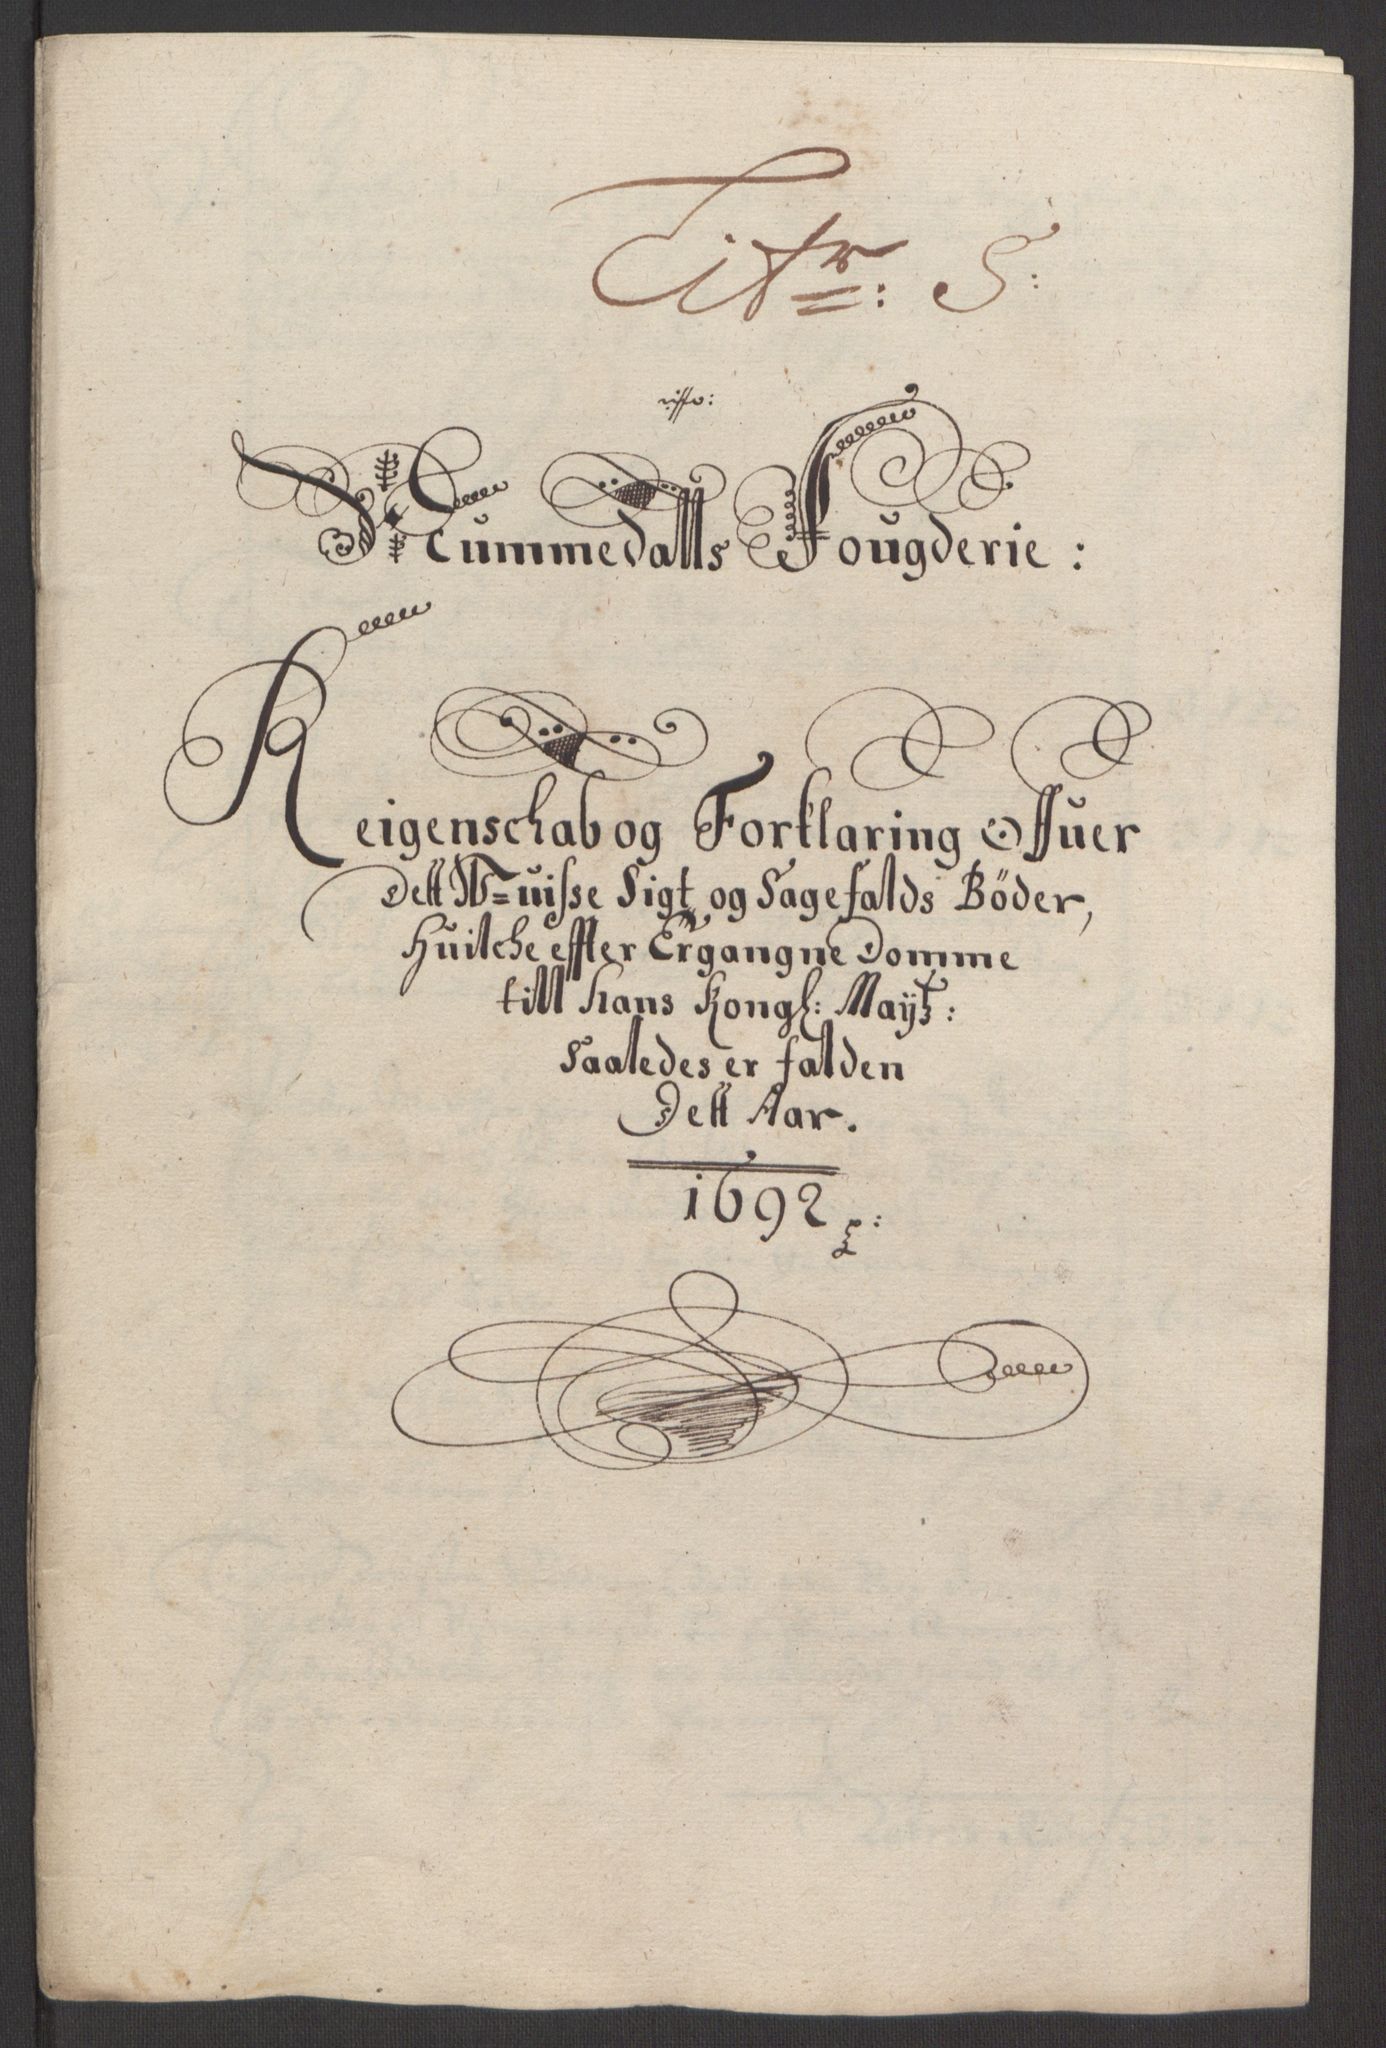 Littr: S:
Nummedalls Fougderie:
Reigenschab og Forklaring Offuer
Dett W=uisse Sigt og Sagefalds Böder,
Huilche effter Ergangne Domme
till hans Kongl: Mayt:
Saaledes er falden
Dett Aar.
1692